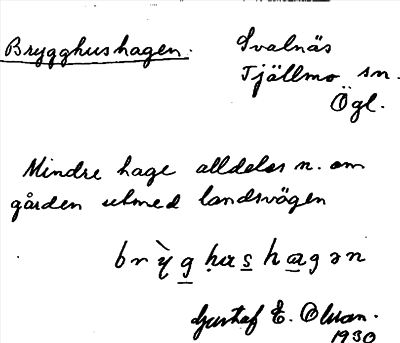 Brygghushagen.
Svalnäs
Tjällmo sn.
Ögl.
Mindre hage alldeles n. om
gården utmed landsvägen
brỳg hus hagən
Gustaf E. Olsson.
1930